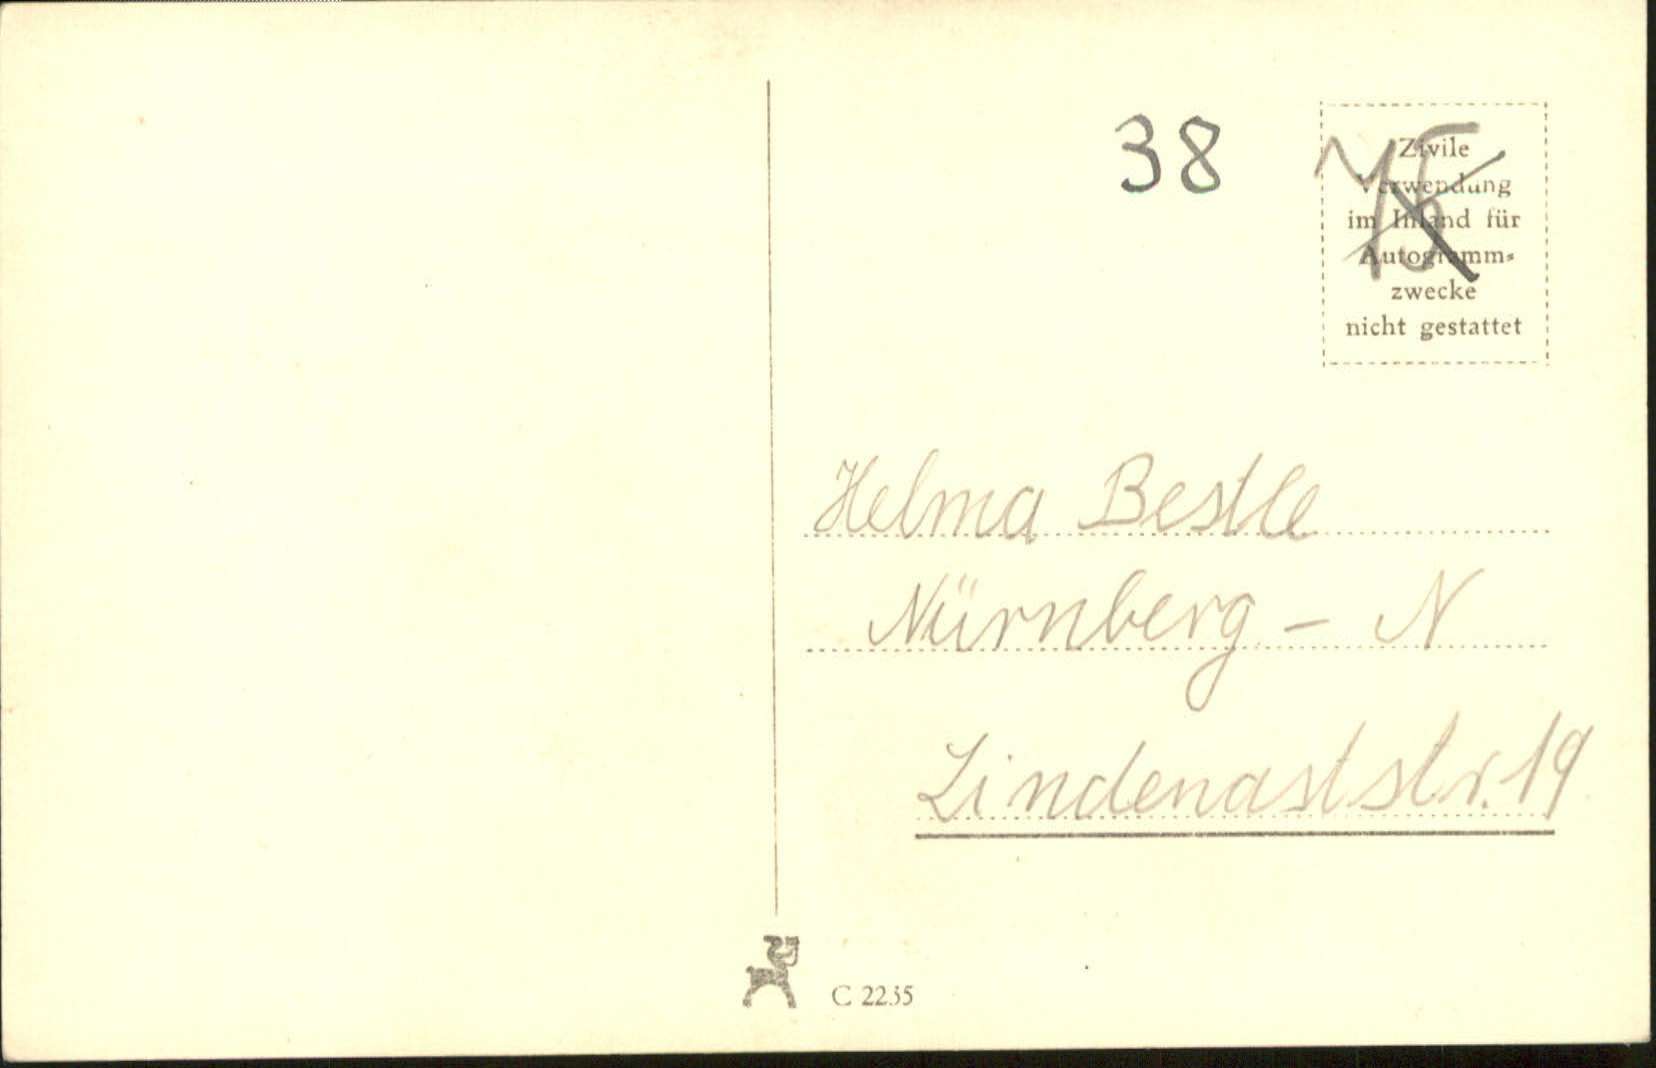 38
75
Zivile
Verwendung
im Inland für
Autogramm-
zwecke
nicht gestattet
Helma Bestle
Nürnberg - N
Lindenaststr. 19
C 2235